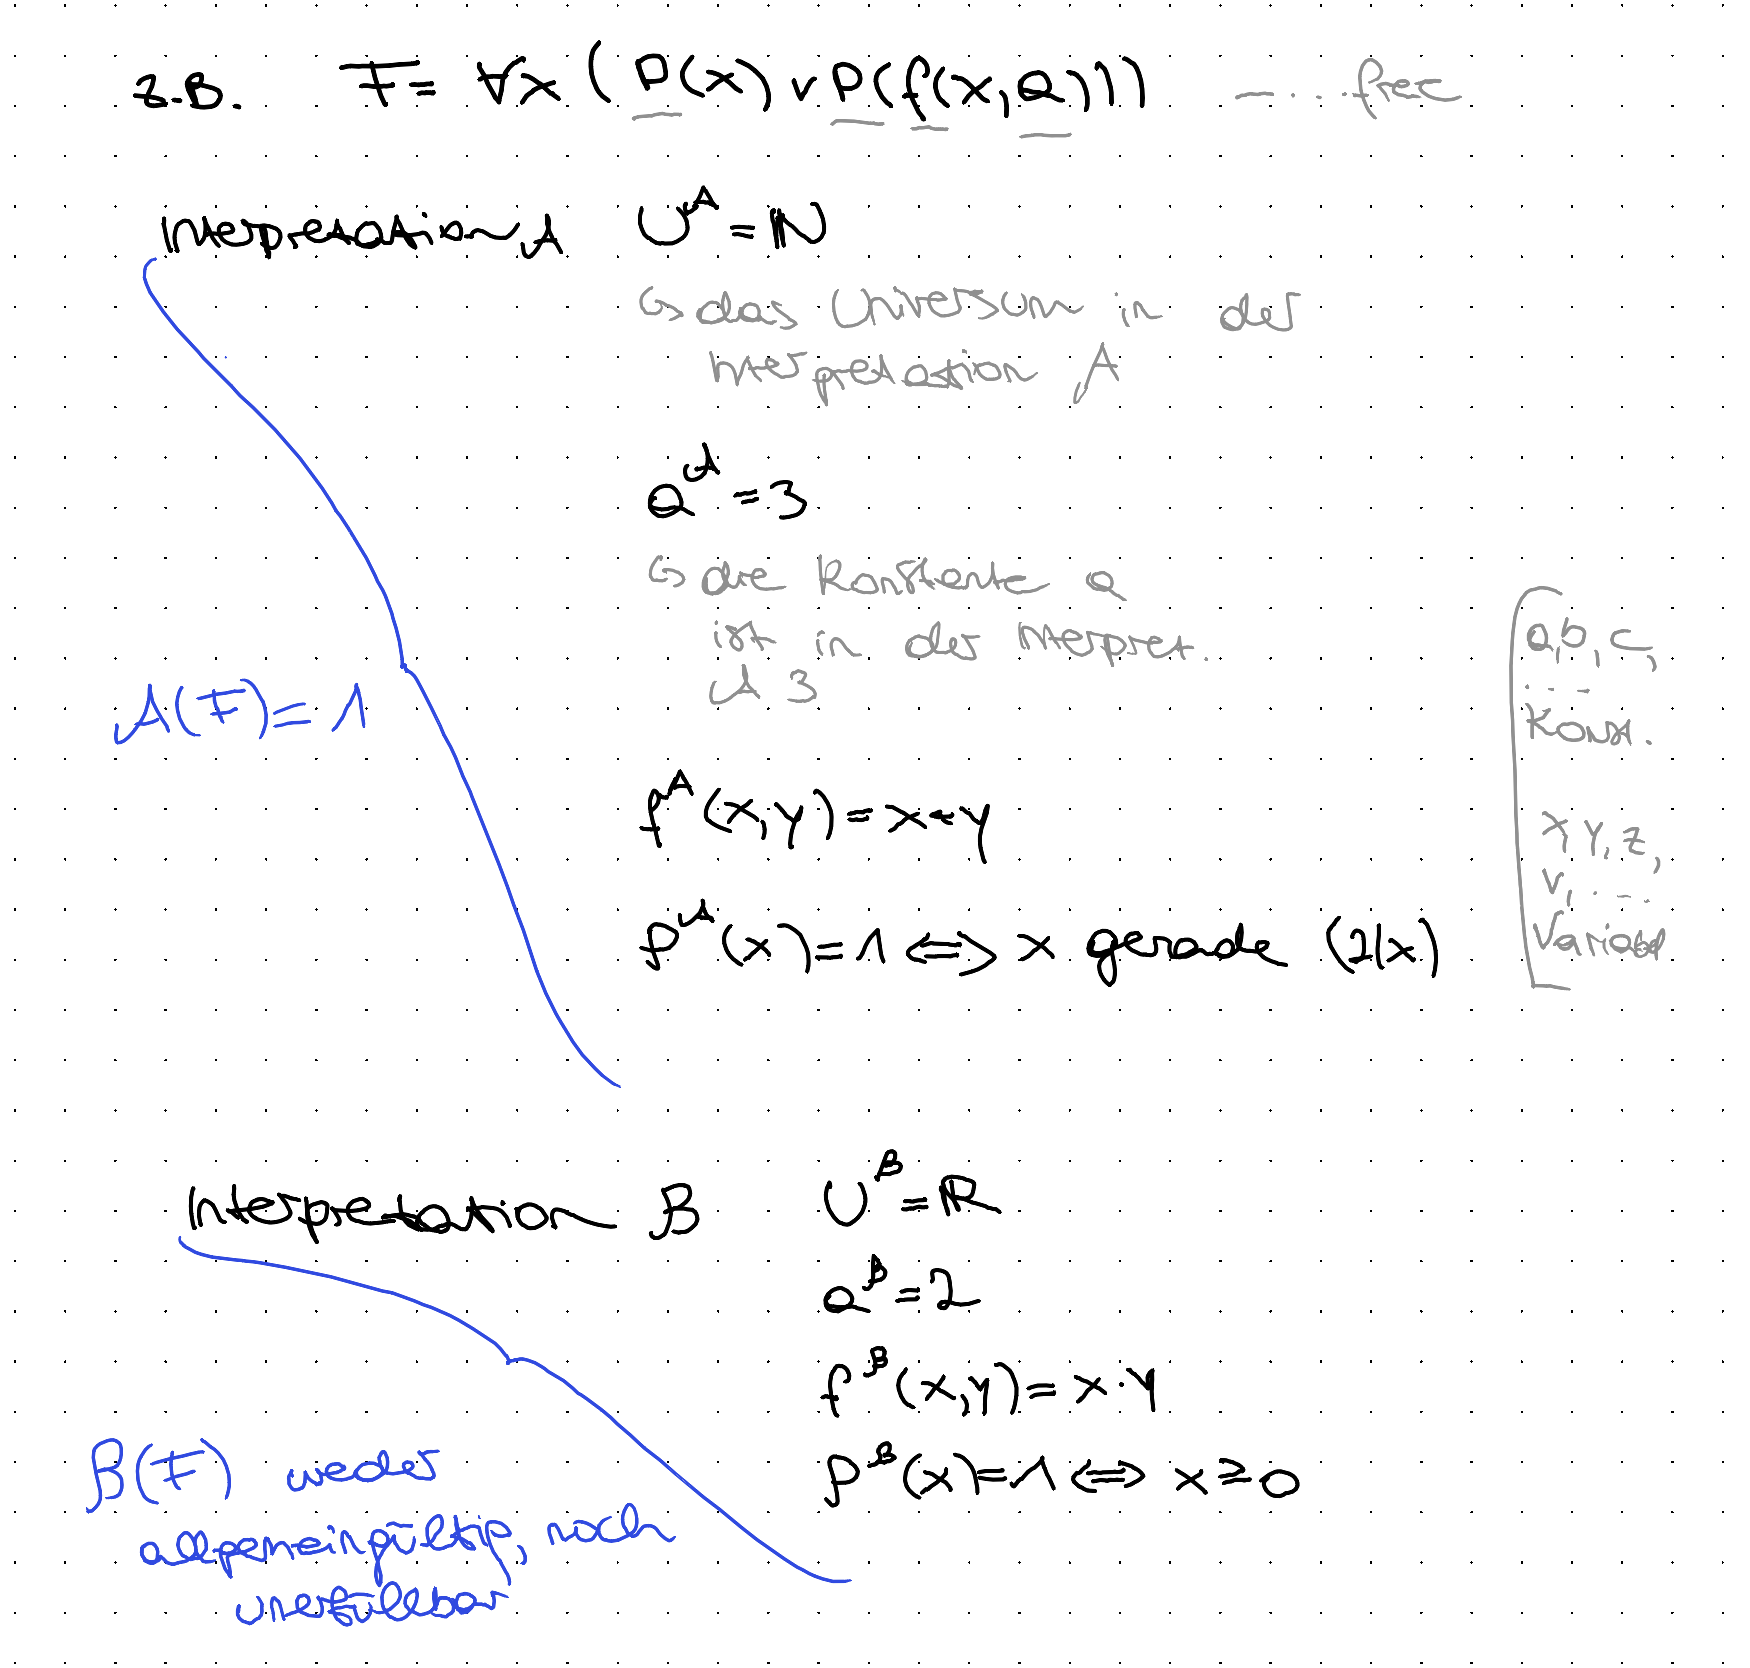 z.B. F = ∀x (P(x) ∨ P(f(x,a))) — ... frei
Interpretation A U^A = ℕ
↳ das Universum in der
Interpretation A
a^A = 3
↳ die Konstante a
ist in der Interpret.
A 3
f^A(x,y) = x+y
P^A(x) = 1 ⟺ x gerade (2|x)
A(F) = 1
a, b, c,
...
Konst.
x, y, z,
v, ...
Variabel
Interpretation B U^B = ℝ
a^B = 2
f^B(x,y) = x·y
P^B(x) = 1 ⟺ x ≥ 0
B(F) weder
allgemeingültig, noch
unerfüllbar